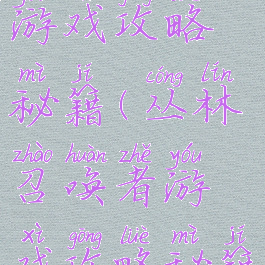 游戏攻略
mì jí cóng lín
秘籍(丛林
zhào huàn zhě yóu
召唤者游
xì gōng lüè mì jí
戏攻略秘籍